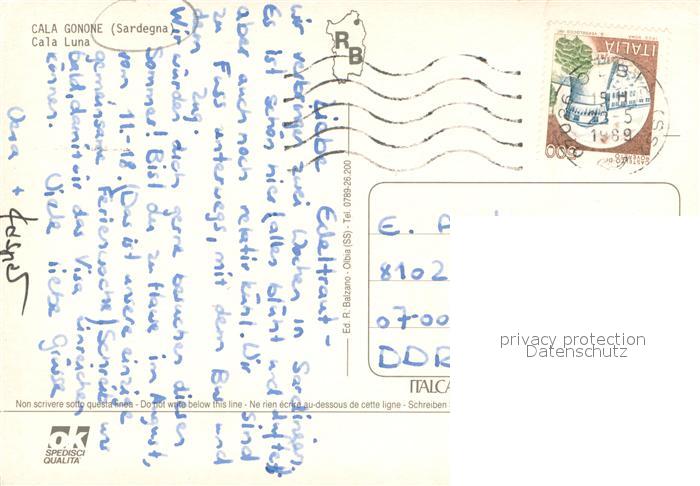 CALA GONONE (Sardegna)
Cala Luna
RB
ITALIA
500
1989
Liebe Edeltraut –
wir verbringen zwei Wochen in Sardinien.
Es ist schön hier (alles blüht und duftet)
aber auch noch relativ kühl. Wir sind
zu Fuss unterwegs, mit dem Bus und
dem Zug.
Wir würden dich gerne besuchen diesen
Sommer! Bist du zu Hause im August,
vom 11.-18. (Das ist unsere einzige
gemeinsame Ferienwoche) Schreib uns
bald, damit wir das Visa einreichen
können. Viele liebe Grüsse
Vera +
Ed. R. Balzano - Olbia (SS) - Tel. 0789-26.200
E.
8102
0700
DDR
ITALCA
privacy protection
Datenschutz
Non scrivere sotto questa linea - Do not write below this line - Ne rien écrire au-dessous de cette ligne - Schreiben
ok
SPEDISCI
QUALITA'